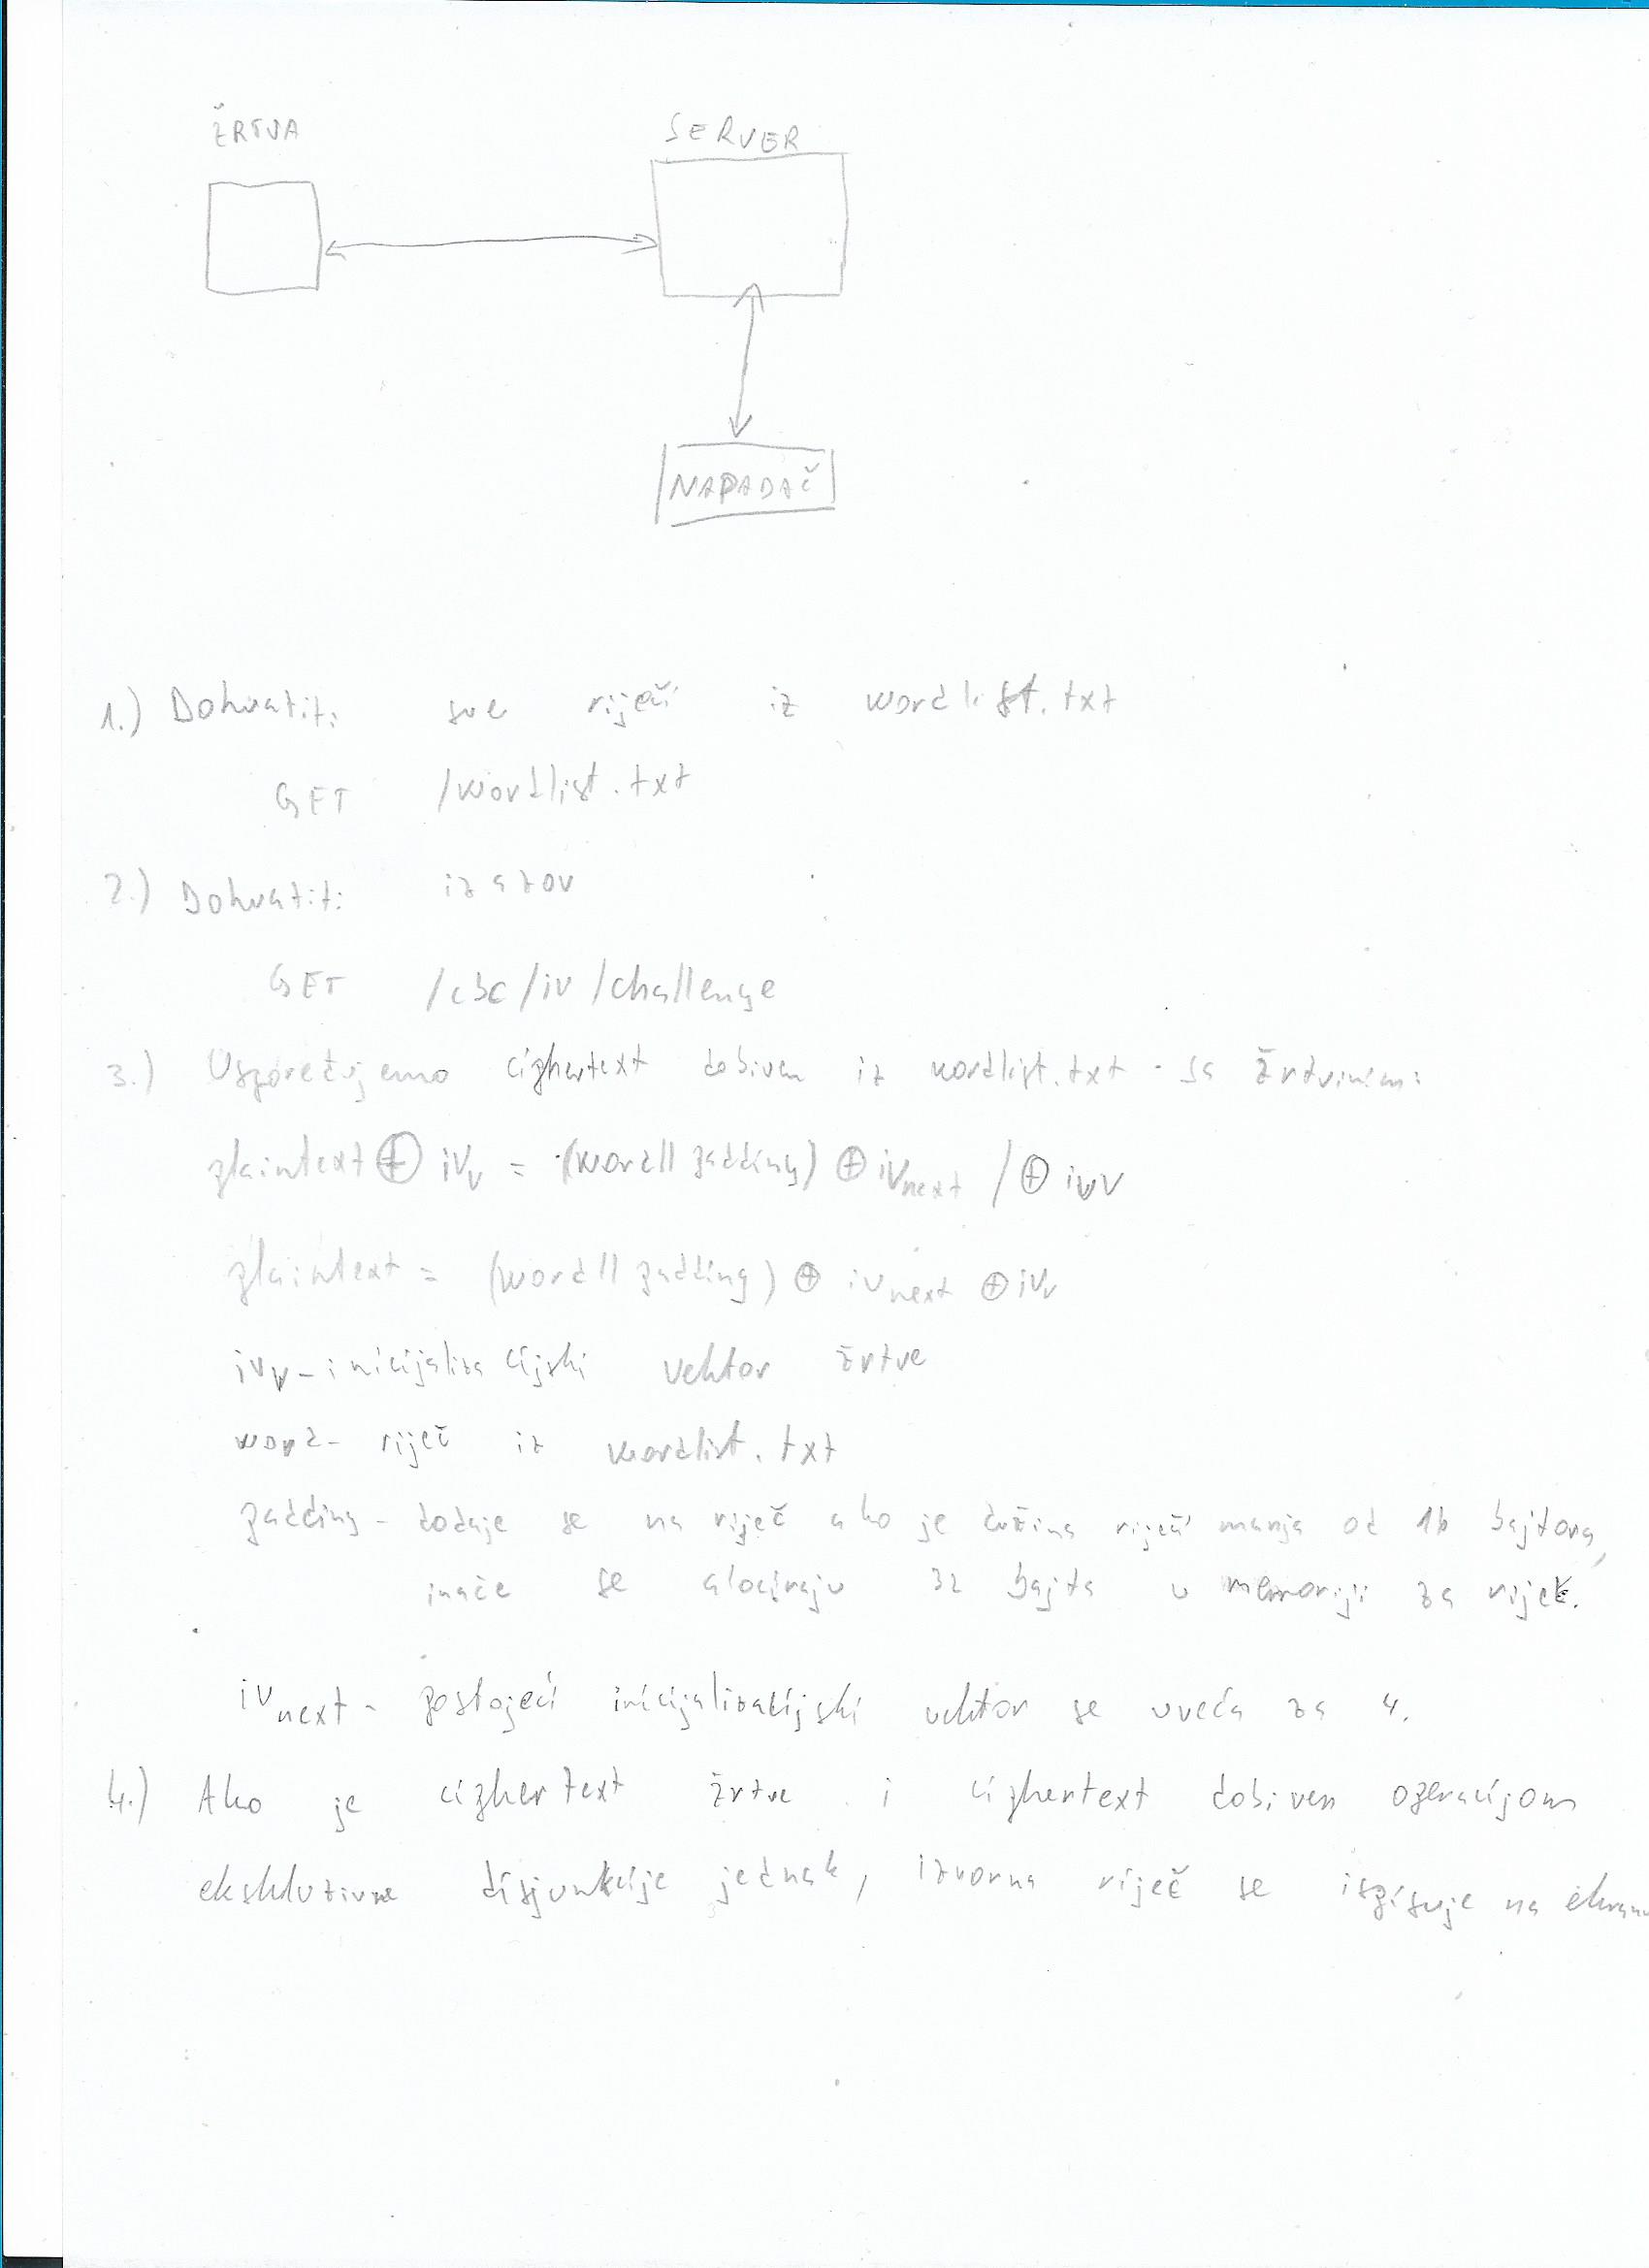 ŽRTVA
SERVER
NAPADAČ
1.) Dohvatiti sve riječi iz wordlist.txt
GET /wordlist.txt
2.) Dohvatiti izazov
GET /cbc/iv/challenge
3.) Uspoređujemo ciphertext dobiven iz wordlist.txt - sa žrtvinim:
plaintext ⊕ ivv = (word || padding) ⊕ ivnext / ⊕ ivv
plaintext = (word || padding) ⊕ ivnext ⊕ ivv
ivv - inicijalizacijski vektor žrtve
word - riječ iz wordlist.txt
padding - dodaje se na riječ ako je dužina riječi manja od 16 bajtova,
inače se alociraju 32 bajta u memoriji za riječ.
ivnext - postojeći inicijalizacijski vektor se uveća za 4.
4.) Ako je ciphertext žrtve i ciphertext dobiven operacijom
ekskluzivne disjunkcije jednak, izvorna riječ se ispisuje na ekranu